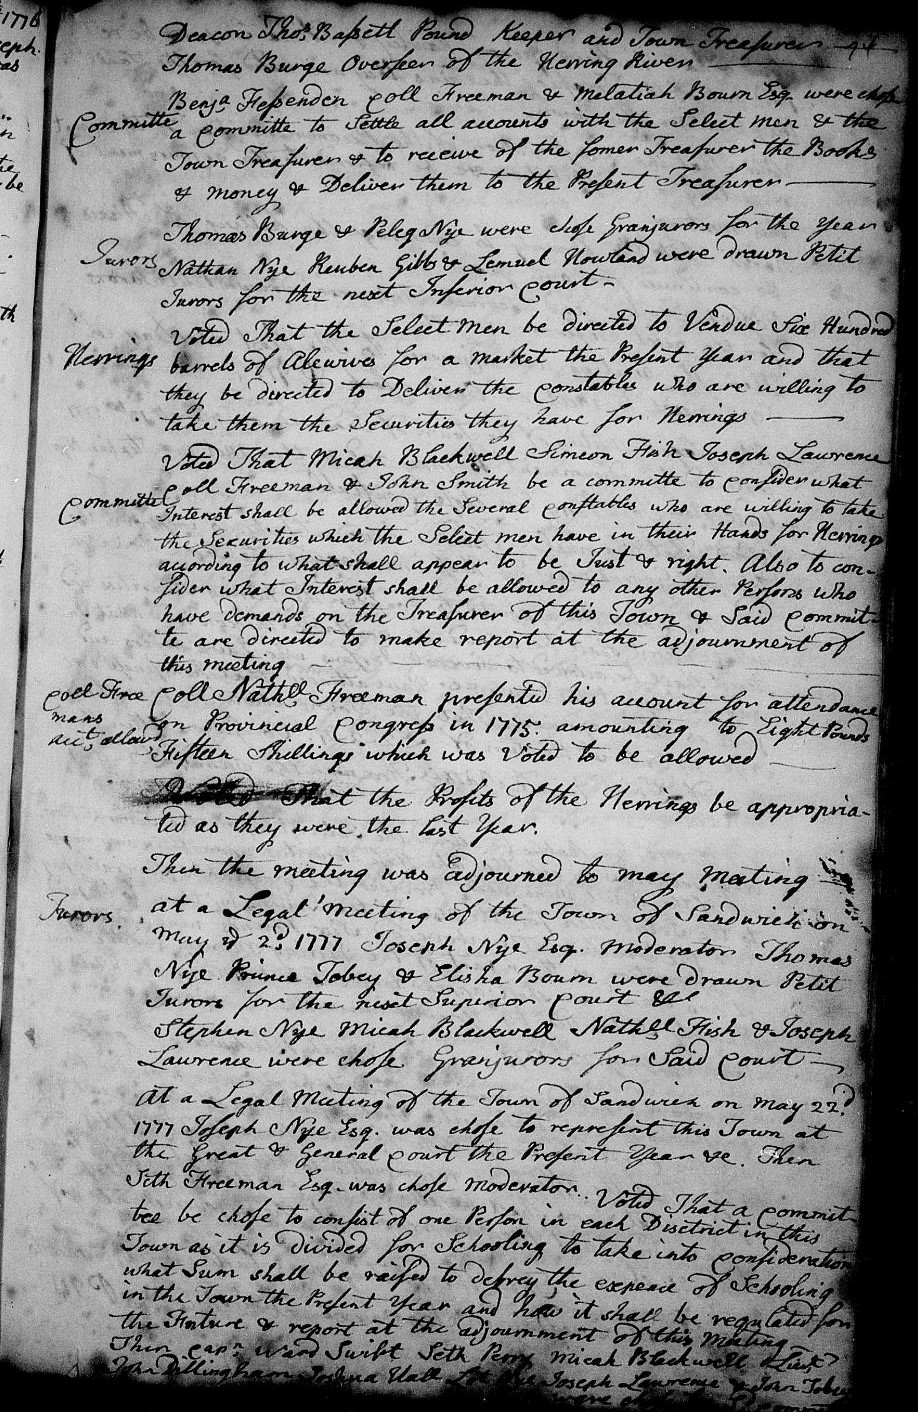 1776
seph.
as
Deacon Thos. Bassett Pound Keeper and Town Treasurer
Thomas Burge Overseer of the Herring River
Benja. Fessenden Coll Freeman & Melatiah Bourn Esq. were chose
Committe
a Committe to Settle all accounts with the Select men & the
Town Treasurer & to receive of the former Treasurer the Books
& money & Deliver them to the Present Treasurer
Thomas Burge & Peleg Nye were chose Granjurors for the Year
Jurors
Nathan Nye Reuben Gibbs & Lemuel Howland were drawn Petit
Jurors for the next Inferior Court
Voted That the Select men be directed to Vendue Six Hundred
Herrings
barrels of Alewives for a market the Present Year and that
they be directed to Deliver the Constables who are willing to
take them the Securities they have for Herrings
Voted That Micah Blackwell Simeon Fish Joseph Lawrence
Coll Freeman & John Smith be a committe to consider what
Committe
Interest shall be allowed the Several Constables who are willing to take
the Securities which the Select men have in their Hands for Herrings
according to what shall appear to be Just & right. Also to con-
sider what Interest shall be allowed to any other Persons who
have demands on the Treasurer of this Town & Said Commit-
te are directed to make report at the adjournment of
this meeting
Coll Free
mans
acct. allowd
Coll Nathll Freeman presented his account for attendance
on Provincial Congress in 1775. amounting to Eight Pounds
Fifteen Shillings which was Voted to be allowed
Voted That the Profits of the Herrings be appropria-
ted as they were the last Year.
Then the meeting was adjourned to may meeting
Jurors
at a Legal Meeting of the Town of Sandwich on
May 2d. 1777 Joseph Nye Esq. moderator Thomas
Nye Prince Tobey & Elisha Bourn were drawn Petit
Jurors for the next Superior Court &c
Stephen Nye Micah Blackwell Nathll Fish & Joseph
Lawrence were chose Granjurors for Said Court
At a Legal Meeting of the Town of Sandwich on May 22d.
1777 Joseph Nye Esq. was chose to represent this Town at
the Great & General Court the Present Year &c. Then
Seth Freeman Esq. was chose moderator. Voted That a commit-
tee be chose to consist of one Person in each Disctrict in this
Town as it is divided for Schooling to take into consideration
what Sum shall be raised to defrey the expence of Schooling
in the Town the Present Year and how it shall be regulated for
the Future & report at the adjournment of this Meeting
Then Capn. Ward Swift Seth Perry Micah Blackwell Lieut.
John Dillingham Joshua Hall Joseph Lawrence & John Tobey